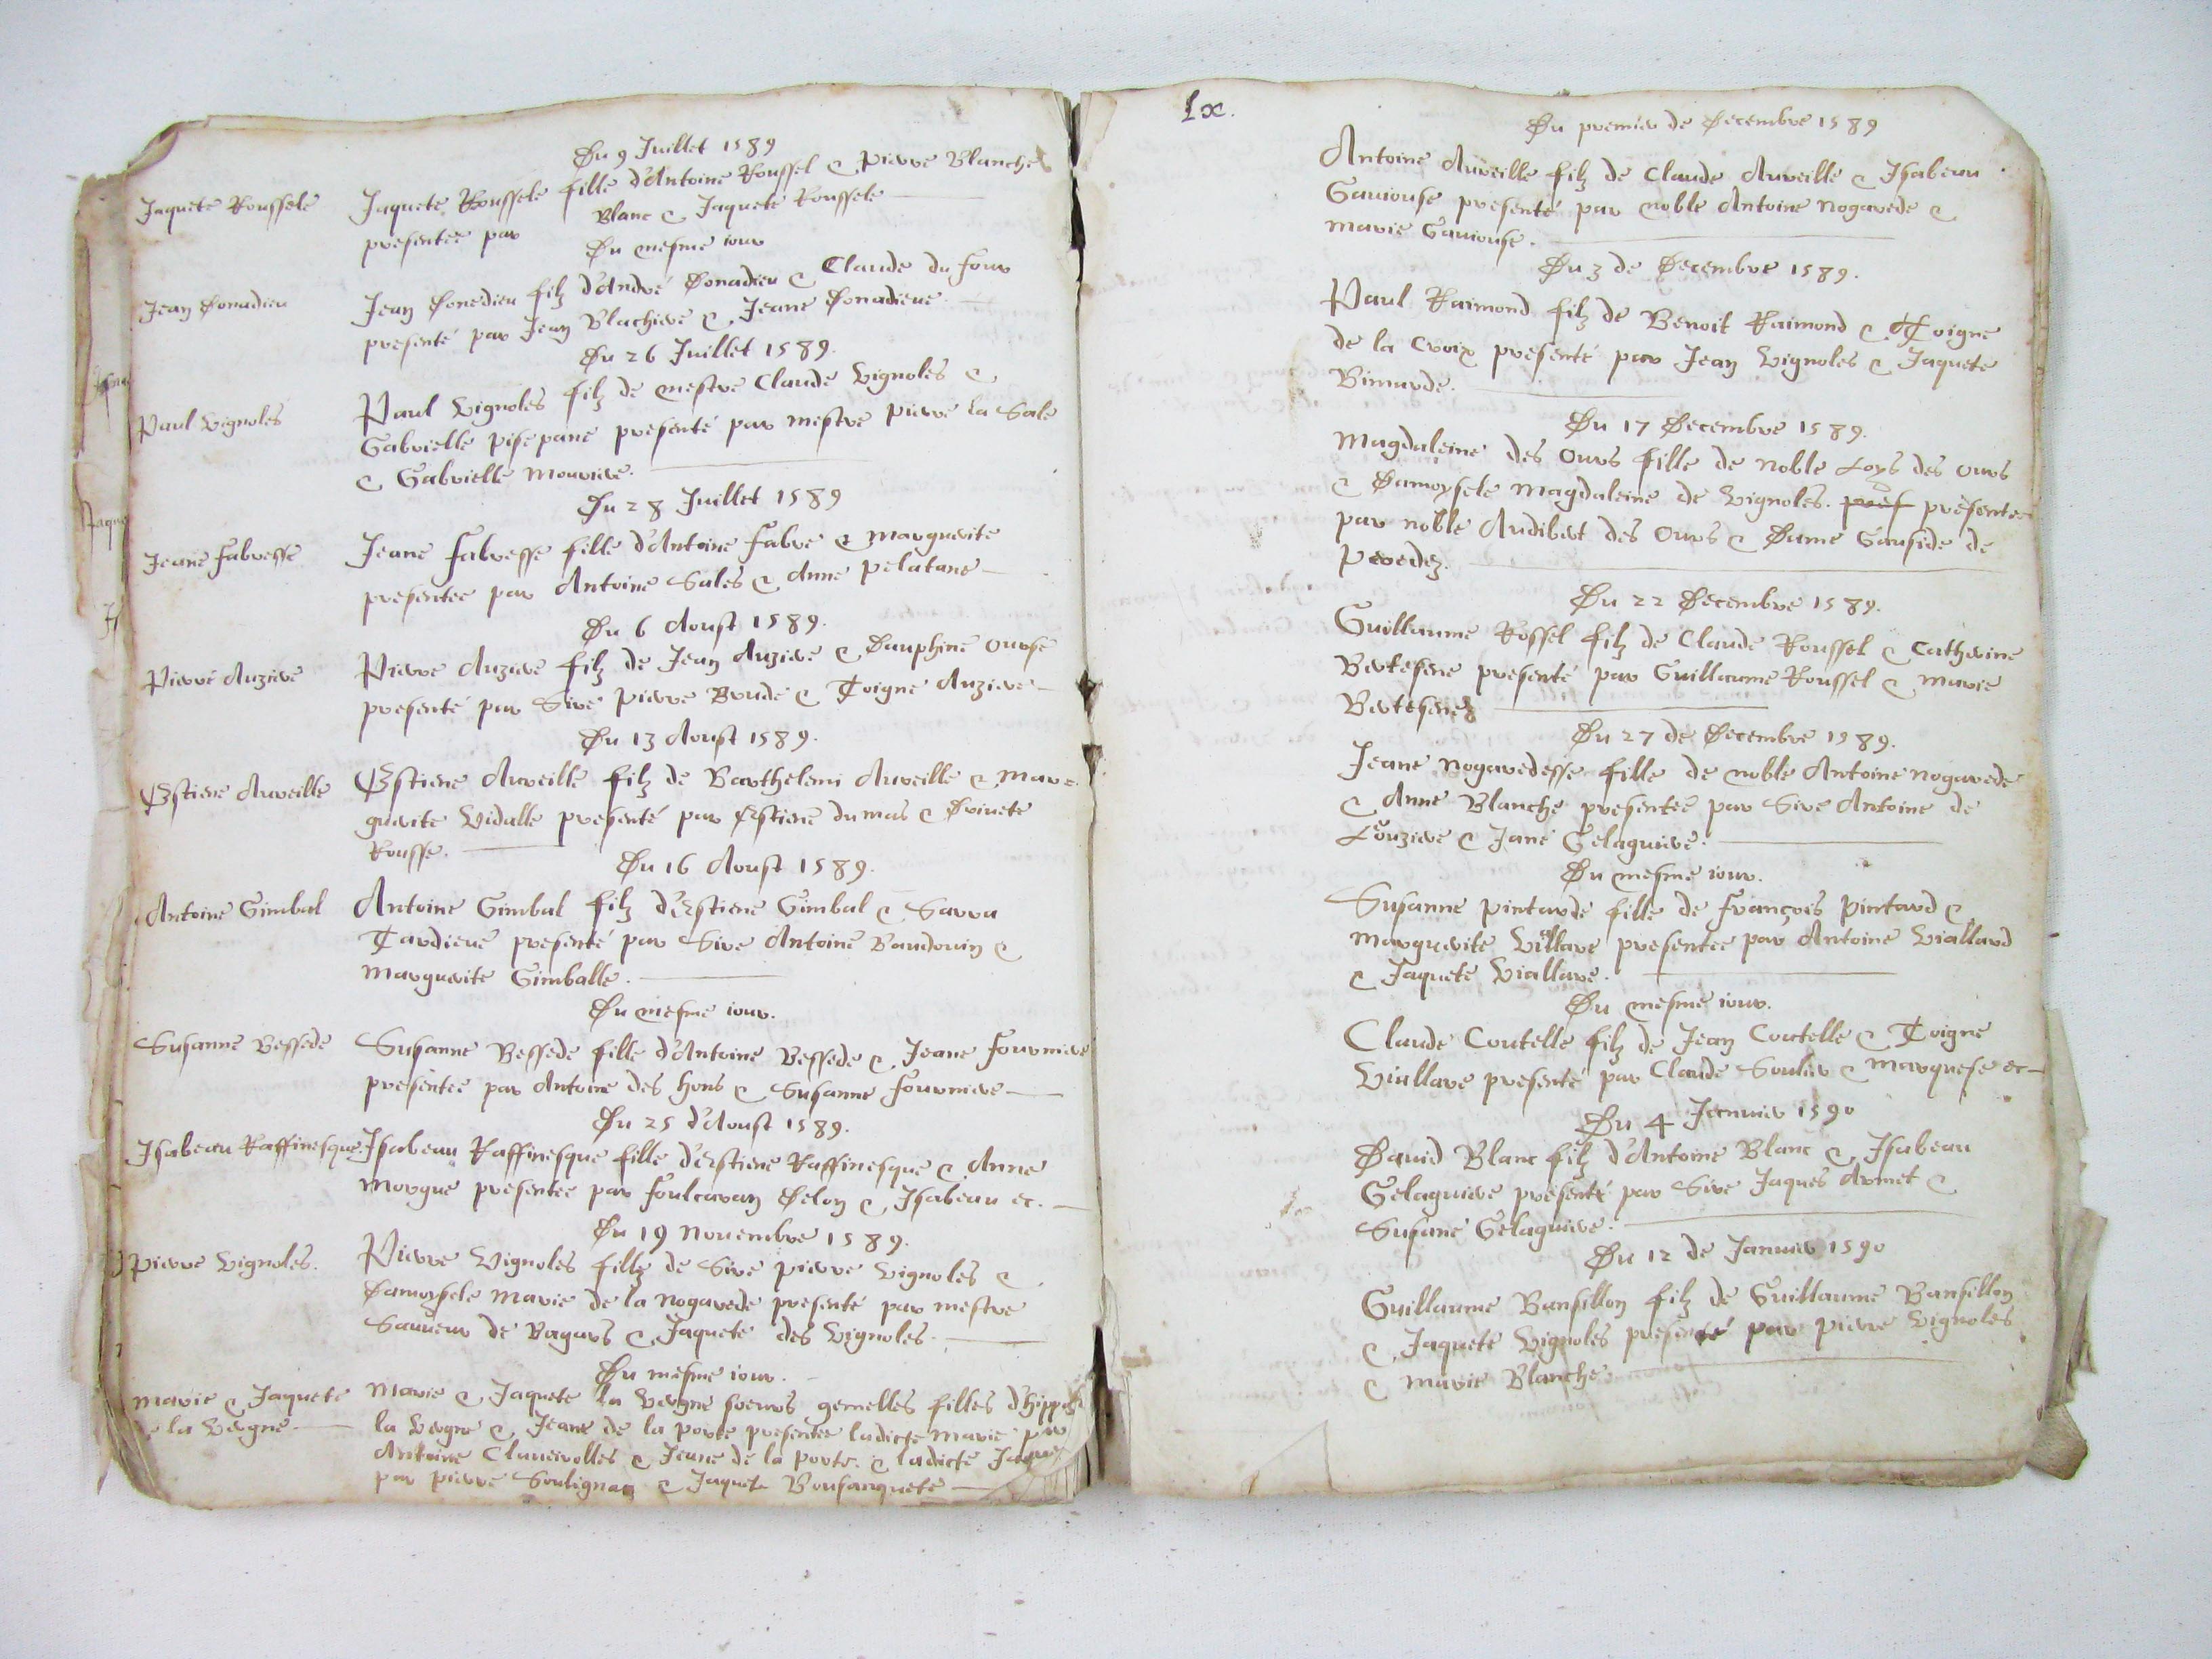 Du 9 Juillet 1589
Jaquete Roussele
Jaquete Roussele fille d'Antoine Roussel & Pierre Blanche
presentée par Blanc & Jaquete Roussele
Du mesme iour
Jean Donadieu
Jean Donedieu filz d'André Donadieu & Claude du four
presenté par Jean Blachiere & Jeane Donadieue
Du 26 Juillet 1589.
Paul Vignoles
Paul Vignoles filz de mestre Claude Vignoles &
Gabrielle pisepane presenté par mestre pierre la Sale
& Gabrielle Mouriere.
Du 28 Juillet 1589
Jeane Fabresse
Jeane Fabresse fille d'Antoine Fabre & Marguerite
presentee par Antoine Sales & Anne pelatane
Du 6 Aoust 1589.
Pierre Auziere
Pierre Auziere filz de Jean Auziere & Dauphine Ourse
presenté par Sire Pierre Brude & Toigne Auziere
Du 13 Aoust 1589.
Estiene Aureille
Estiene Aureille filz de Barthelemi Aureille & Mar-
guerite Vidalle presenté par Estiene dumas & Drivete
Rousse.
Du 16 Aoust 1589.
Antoine Gimbal
Antoine Gimbal filz d'Estiene Gimbal & Sarra
Tardieue presenté par Sire Antoine Baudouin &
Marguerite Gimballe.
Du mesme iour.
Susanne Bessede
Susanne Bessede fille d'Antoine Bessede & Jeane Fourniere
presentee par Antoine des hons & Susanne Fourniere
Du 25 d'Aoust 1589.
Isabeau Raffinesque.
Isabeau Raffinesque fille d'Estiene Raffinesque & Anne
Morgue presentee par Foulcaran Delon & Isabeau ec.
Du 19 Nouembre 1589.
Pierre Vignoles.
Pierre Vignoles fillz de Sire pierre Vignoles &
Damoysele Marie de la Nogarede presenté par mestre
Sauueur de Bagars & Jaquete des Vignoles.
Du mesme iour.
Marie & Jaquete
de la Vergne.
Marie & Jaquete la Vergne soeurs gemelles filles d'hippo
la Vergne & Jeane de la Porte presentee ladicte Marie par
Antoine Clauerolles & Jeane de la Porte. & ladicte Jaquete
par pierre Soulignac & Jaquete Bousanquete
Lx.
Du premier de Decembre 1589
Antoine Aureille filz de Claude Aureille & Isabeau
Gauiouse presenté par noble Antoine Nogarede &
Marie Gauiouse.
Du 3 de Decembre 1589.
Paul Raimond filz de Benoit Raimond & Toigne
de la Croix presenté par Jean Vignoles & Jaquete
Bimarde.
Du 17 Decembre 1589.
Magdaleine des Ours fille de noble Loys des Ours
& Damoysele Magdaleine de Vignoles. pres presentee
par noble Audibert des Ours & Dame Gauside de
Peredez.
Du 22 Decembre 1589.
Guillaume Rossel filz de Claude Roussel & Catherine
Bertesene presenté par Guillaume Roussel & Marie
Bertesene
Du 27 de Decembre 1589.
Jeane Nogaredesse fille de noble Antoine Nogarede
& Anne Blanche presentee par Sire Antoine de
Louziere & Jane Gelaguiere.
Du mesme iour.
Susanne Pintarde fille de François Pintard &
Marguerite Viallare presentee par Antoine Viallard
& Jaquete Viallare.
Du mesme iour.
Claude Coutelle filz de Jean Coutelle & Toigne
Viallare presenté par Claude Soulier & Marquese ec
Du 4 Jenuier 1590
Dauid Blanc filz d'Antoine Blanc & Isabeau
Gelaguiere presenté par Sire Jaques Armet &
Susane Gelaguiere.
Du 12 de Januier 1590
Guillaume Bansillon filz de Guillaume Bansillon
& Jaquete Vignoles presenté par Pierre Vignoles
& Marie Blanche